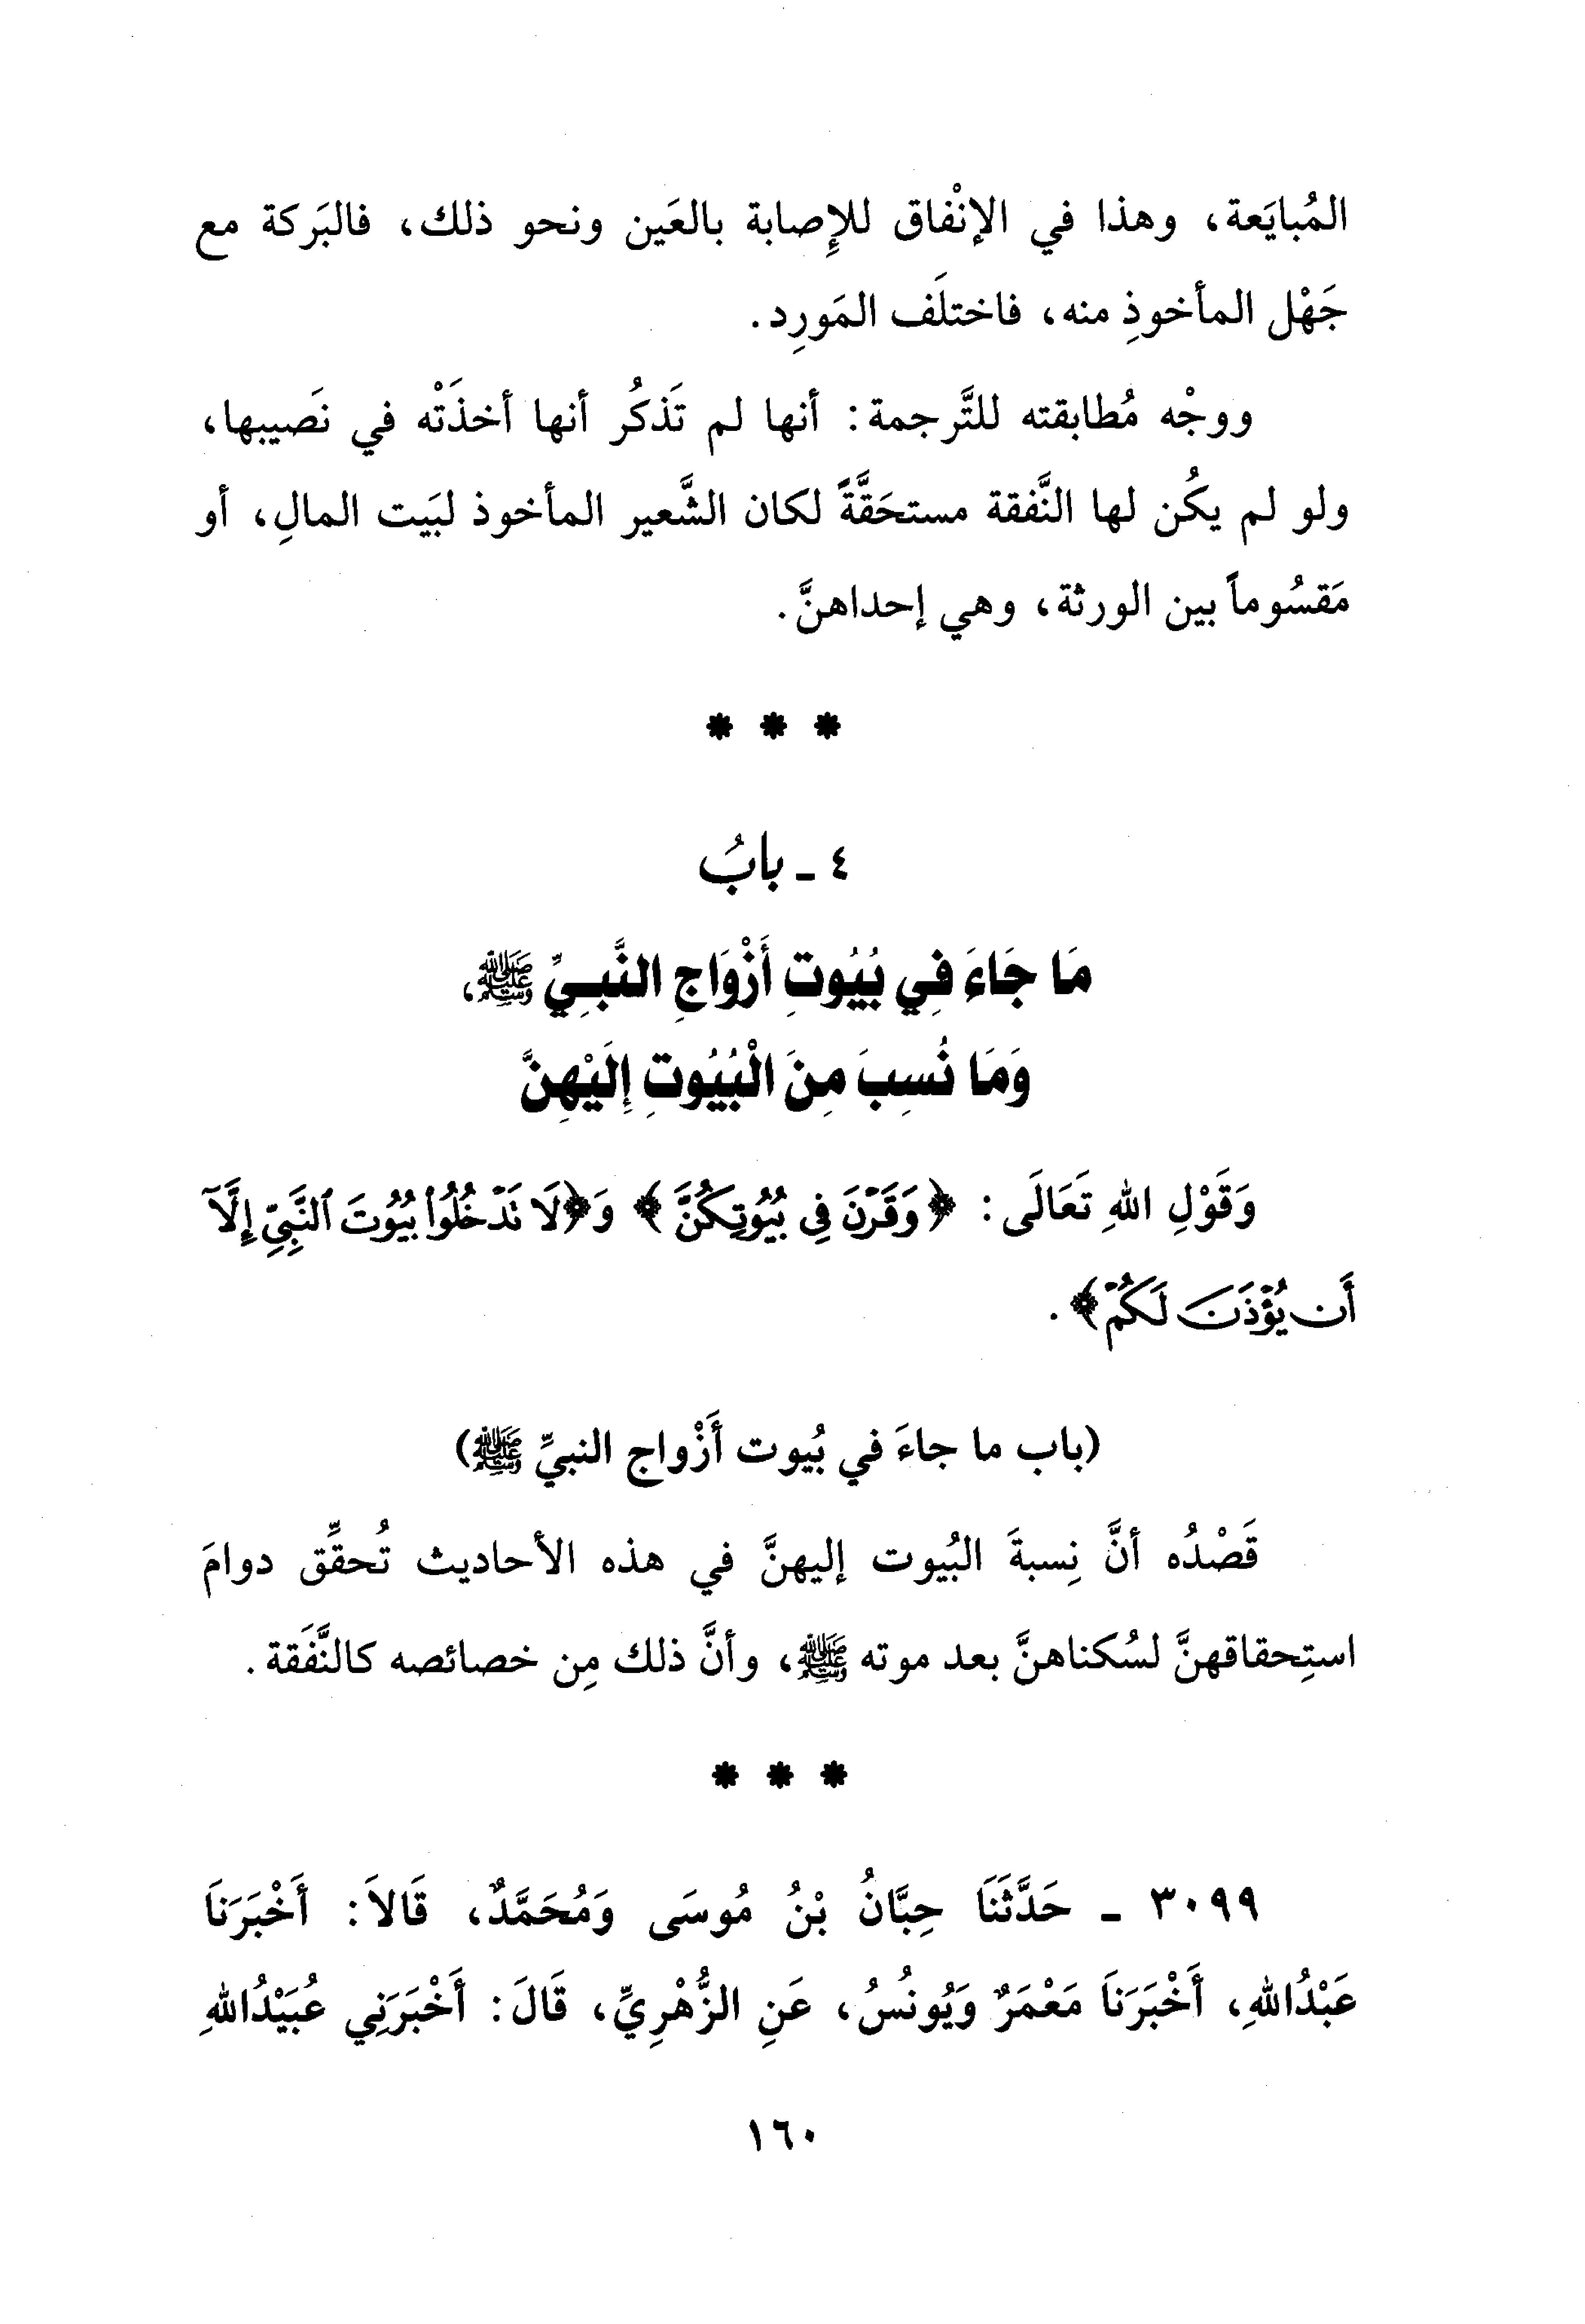 المُبايَعة، وهذا في الإنْفاق للإِصابة بالعَين ونحو ذلك، فالبَركة مع
جَهْل المأخوذِ منه، فاختلَف المَورِد.
ووجْه مُطابقته للتَّرجمة: أنها لم تَذكُر أنها أخذَتْه في نَصيبها،
ولو لم يكُن لها النَّفقة مستحَقَّةً لكان الشَّعير المأخوذ لبَيت المالِ، أو
مَقسُوماً بين الورثة، وهي إحداهنَّ.
* * *
٤ - بابُ
مَا جَاءَ فِي بُيُوتِ أَزْوَاجِ النَّبِيِّ ﷺ،
وَمَا نُسِبَ مِنَ الْبُيُوتِ إِلَيْهِنَّ
وَقَوْلِ اللهِ تَعَالَى: ﴿وَقَرْنَ فِي بُيُوتِكُنَّ﴾ وَ﴿لَا تَدْخُلُوا بُيُوتَ ٱلنَّبِيِّ إِلَّآ
أَن يُؤْذَنَ لَكُمْ﴾.
(باب ما جاءَ في بُيوت أَزْواج النبيِّ ﷺ)
قَصْدُه أنَّ نِسبةَ البُيوت إليهنَّ في هذه الأحاديث تُحقِّق دوامَ
استِحقاقهنَّ لسُكناهنَّ بعد موته ﷺ، وأنَّ ذلك مِن خصائصه كالنَّفَقة.
* * *
٣٠٩٩ - حَدَّثَنَا حِبَّانُ بْنُ مُوسَى وَمُحَمَّدٌ، قَالاَ: أَخْبَرَنَا
عَبْدُاللهِ، أَخْبَرَنَا مَعْمَرٌ وَيُونُسُ، عَنِ الزُّهْرِيِّ، قَالَ: أَخْبَرَنِي عُبَيْدُاللهِ
١٦٠